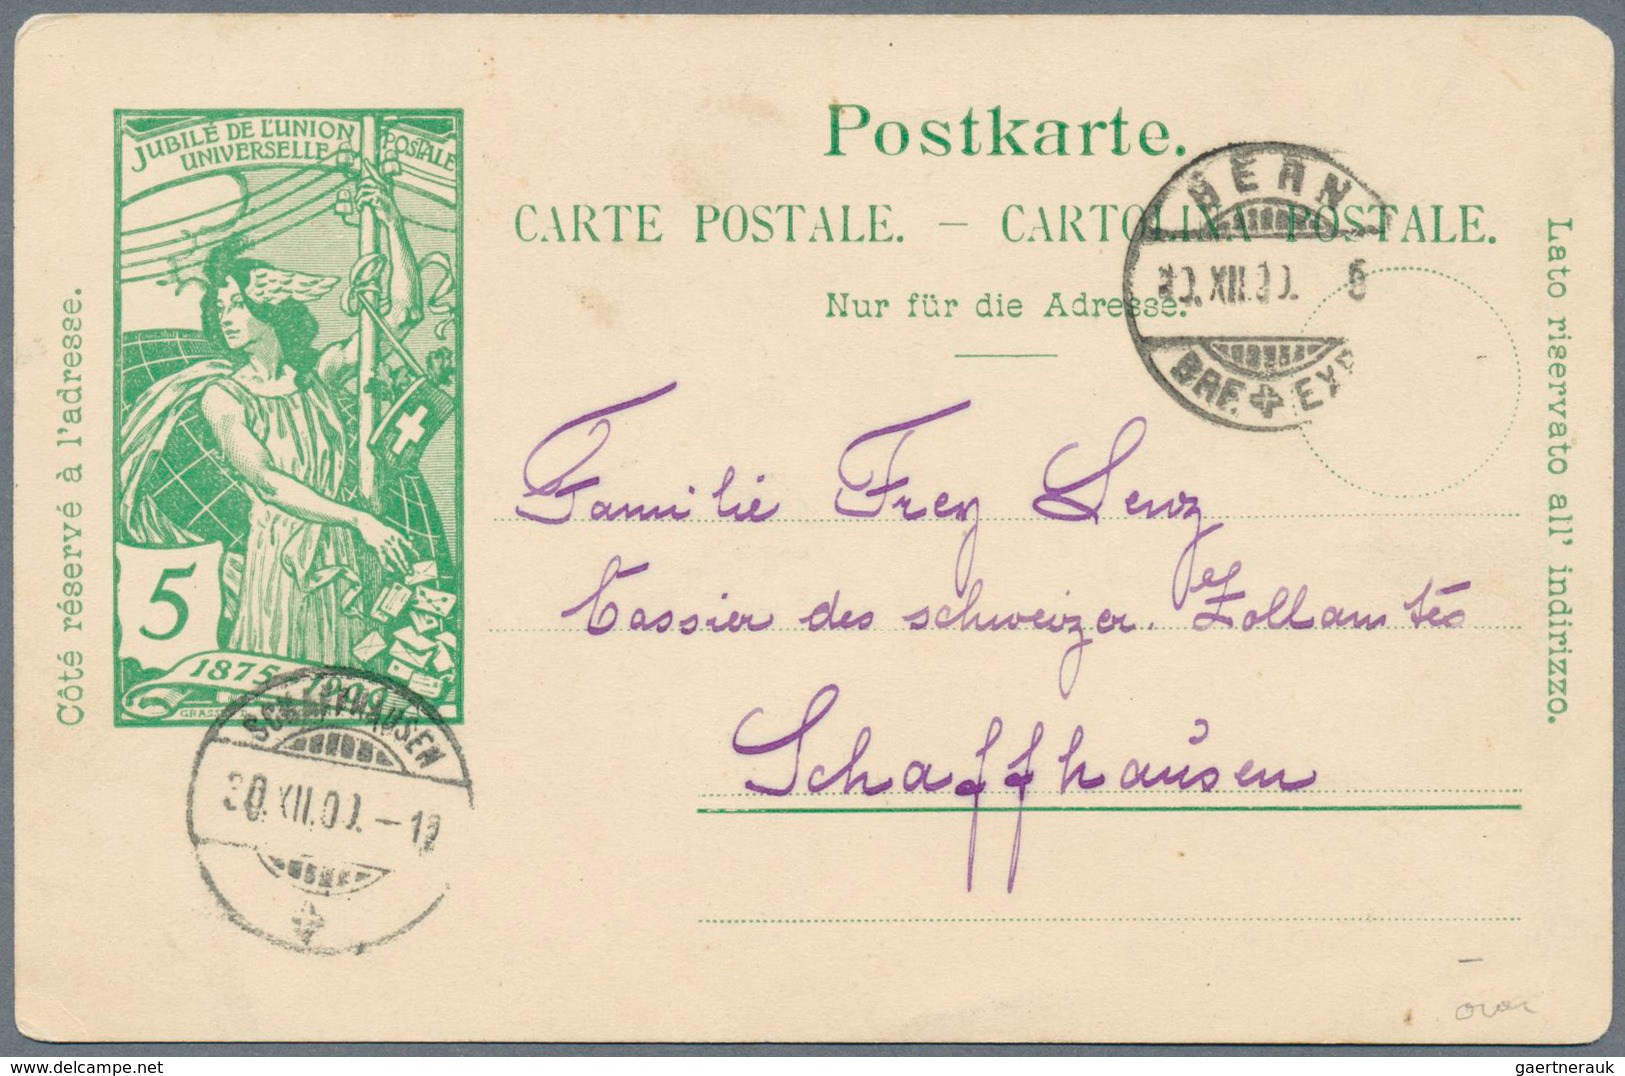 JUBILÉ DE L'UNION POSTALE
UNIVERSELLE
5
1875 1900
Côté réservé à l'adresse.
Postkarte.
CARTE POSTALE. — CARTOLINA POSTALE.
Nur für die Adresse.
Lato riservato all' indirizzo.
BERN
30.XII.00. 6
BRF. EXP
Familie Frey Lenz
Cassier des schweizer. Zollamtes
Schaffhausen
SCHAFFHAUSEN
30.XII.00. – 12
gaertnerauk